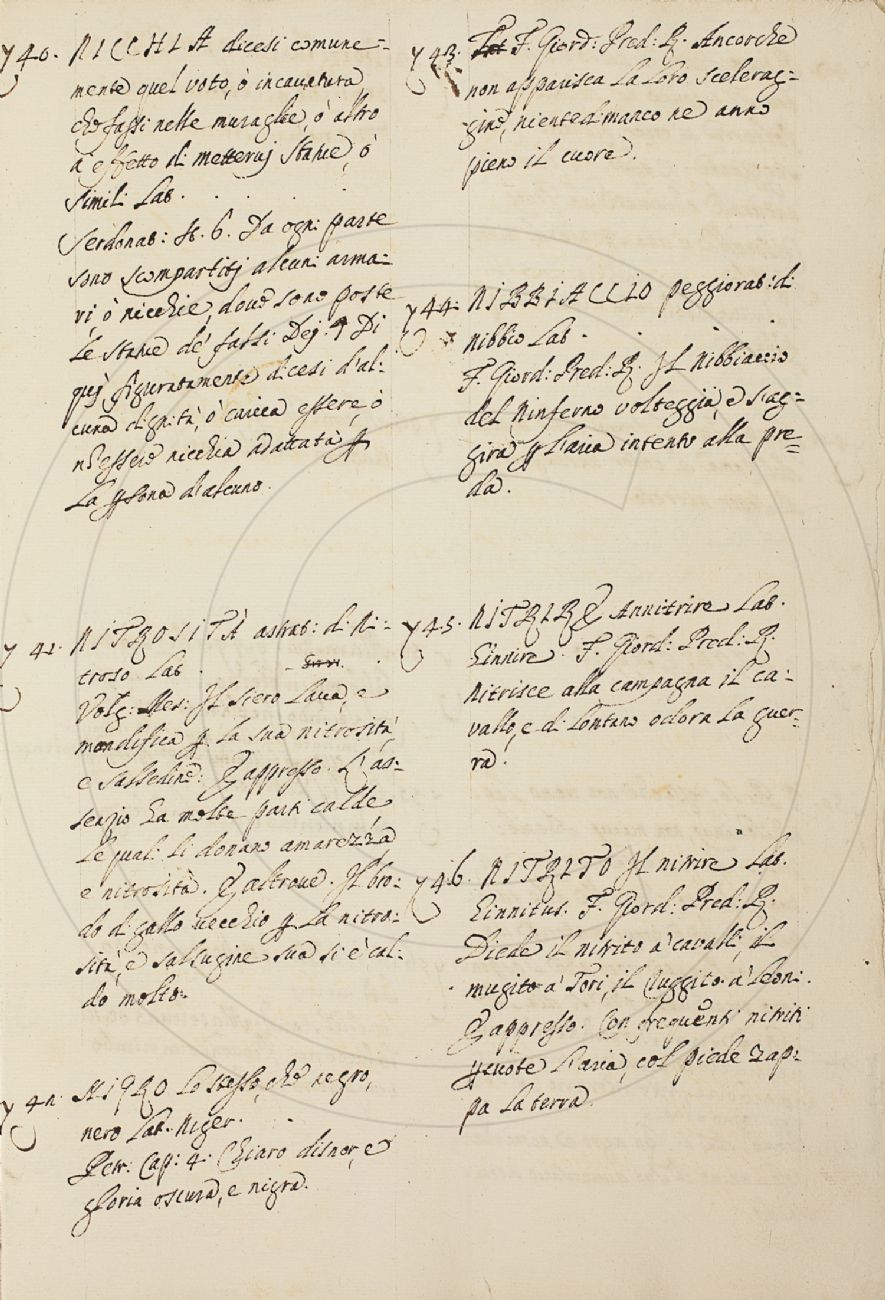 740. NICCHIA dicesi comune=
mente quel voto, ò incavatura
che fassi nelle muraglie, ò altro
a effetto di mettervj Statue, ò
simili Lat.
Serdonat: St. 6. Da ogni parte
sono scompartitj alcuni arma=
rj ò nicchie, dove sono poste
Le Statue de' falsi Dej. Di
quj figuratamente dicesi d'al:
cuna dignità, ò carica essere, ò
n'essere nicchia adattata p
La psona d'alcuno.
741. NITROSITÀ astrat: di Ni:
troso Lat.
Volg: Mes: Il siero Lava, e
mondifica p La sua nitrosità,
e salsedine: E appresso. L'as:
senzio ha molte parti calde
Le quali li donano amarezza
e nitrosità. E altrove. Il bro:
do di gallo vecchio p La nitro:
sità, e salsugine sua si è cal:
do molto.
742. NIGRO Lo stesso, che negro,
nero Lat. Niger.
Petr: Cap: 4. Chiaro disnor, e
gloria oscura, e nigra.
743. F. Giord: Pred: R. Ancorche
non apparisca La Loro scelerag=
gine, nientedimanco ne anno
pieno il cuore.
744. NIBBIACCIO peggiorat: di
nibbio Lat.
F. Giord: Pred: R. Il Nibbiaccio
del Ninferno volteggia, e s'ag=
gira p L'aria intento alla pre=
da.
745. NITRIRE Annitrire Lat.
hinnire. F. Giord: Pred: R.
Nitrisce alla campagna il ca:
vallo, e di Lontano odora La guer=
ra.
746. NITRITO Il nitrire Lat.
hinnitus. F. Giord: Pred: R.
Diede il nitrito a' cavalli, il
mugito a' Tori, il ruggito a' Leoni.
E appresso. Con frequenti nitriti
pcuote L'aria, col piede zap:
pa La terra.